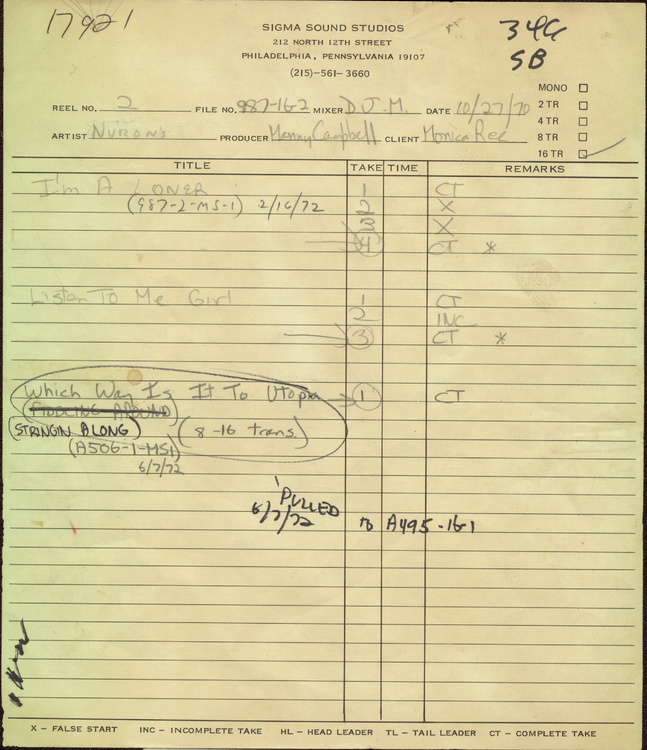 17921
SIGMA SOUND STUDIOS
212 NORTH 12TH STREET
PHILADELPHIA, PENNSYLVANIA 19107
(215)-561-3660
34G
SB
MONO
2 TR
4 TR
8 TR
16 TR
REEL NO. 2 FILE NO. 987-16-2 MIXER D.J.M. DATE 10/27/70
ARTIST NURON'S PRODUCER Manny Campbell CLIENT Monica Ree
TITLE TAKE TIME REMARKS
I'm A LONER 1 CT
(987-2-MS-1) 2/16/72 2 X
3 X
4 CT *
Listen To Me Girl 1 CT
2 INC
3 CT *
Which Way Is It To Utopia 1 CT
FIDDLING AROUND
STRINGIN ALONG (8-16 trans.)
(A506-1-MS1)
6/7/72
PULLED
6/7/72 to A495-16-1
X - FALSE START INC - INCOMPLETE TAKE HL - HEAD LEADER TL - TAIL LEADER CT - COMPLETE TAKE